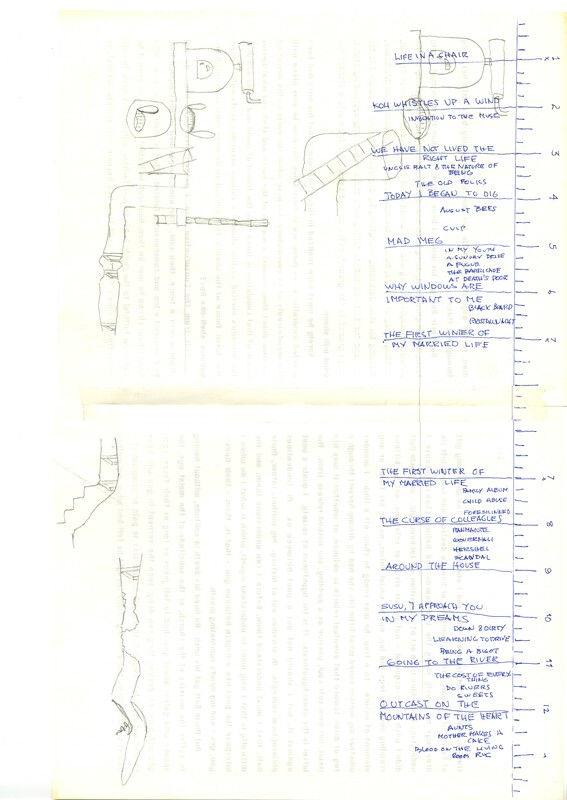 LIFE IN A CHAIR
1
KOH WHISTLES UP A WIND
2
INVOCATION TO THE MUSE
WE HAVE NOT LIVED THE
3
RIGHT LIFE
UNCLE BALT & THE NATURE OF
BEING
THE OLD FOLKS
TODAY I BEGAN TO DIG
4
AUGUST BEES
CULP
MAD MEG
5
IN MY YOUTH
A SUNDAY DRIVE
A FUGUE
THE BARRICADE
AT DEATH'S DOOR
WHY WINDOWS ARE
6
IMPORTANT TO ME
BLACKBOARD
THE FIRST WINTER OF
7
MY MARRIED LIFE
THE FIRST WINTER OF
7
MY MARRIED LIFE
FAMILY ALBUM
CHILD ABUSE
FORESKINNED
THE CURSE OF COLLEAGUES
8
PLANMANTEE
GOVERNALI
HERSCHEL
SCANDAL
AROUND THE HOUSE
9
SUSU, I APPROACH YOU
IN MY DREAMS
10
DOWN & DIRTY
LEARNING TO DRIVE
BEING A BIGOT
GOING TO THE RIVER
11
THE COST OF EVERY
THING
DO RIVERS
SWEETS
OUTCAST ON THE
12
MOUNTAINS OF THE HEART
AUNTS
MOTHER MAKES A
CAKE
BLOOD ON THE LIVING
ROOM RUG